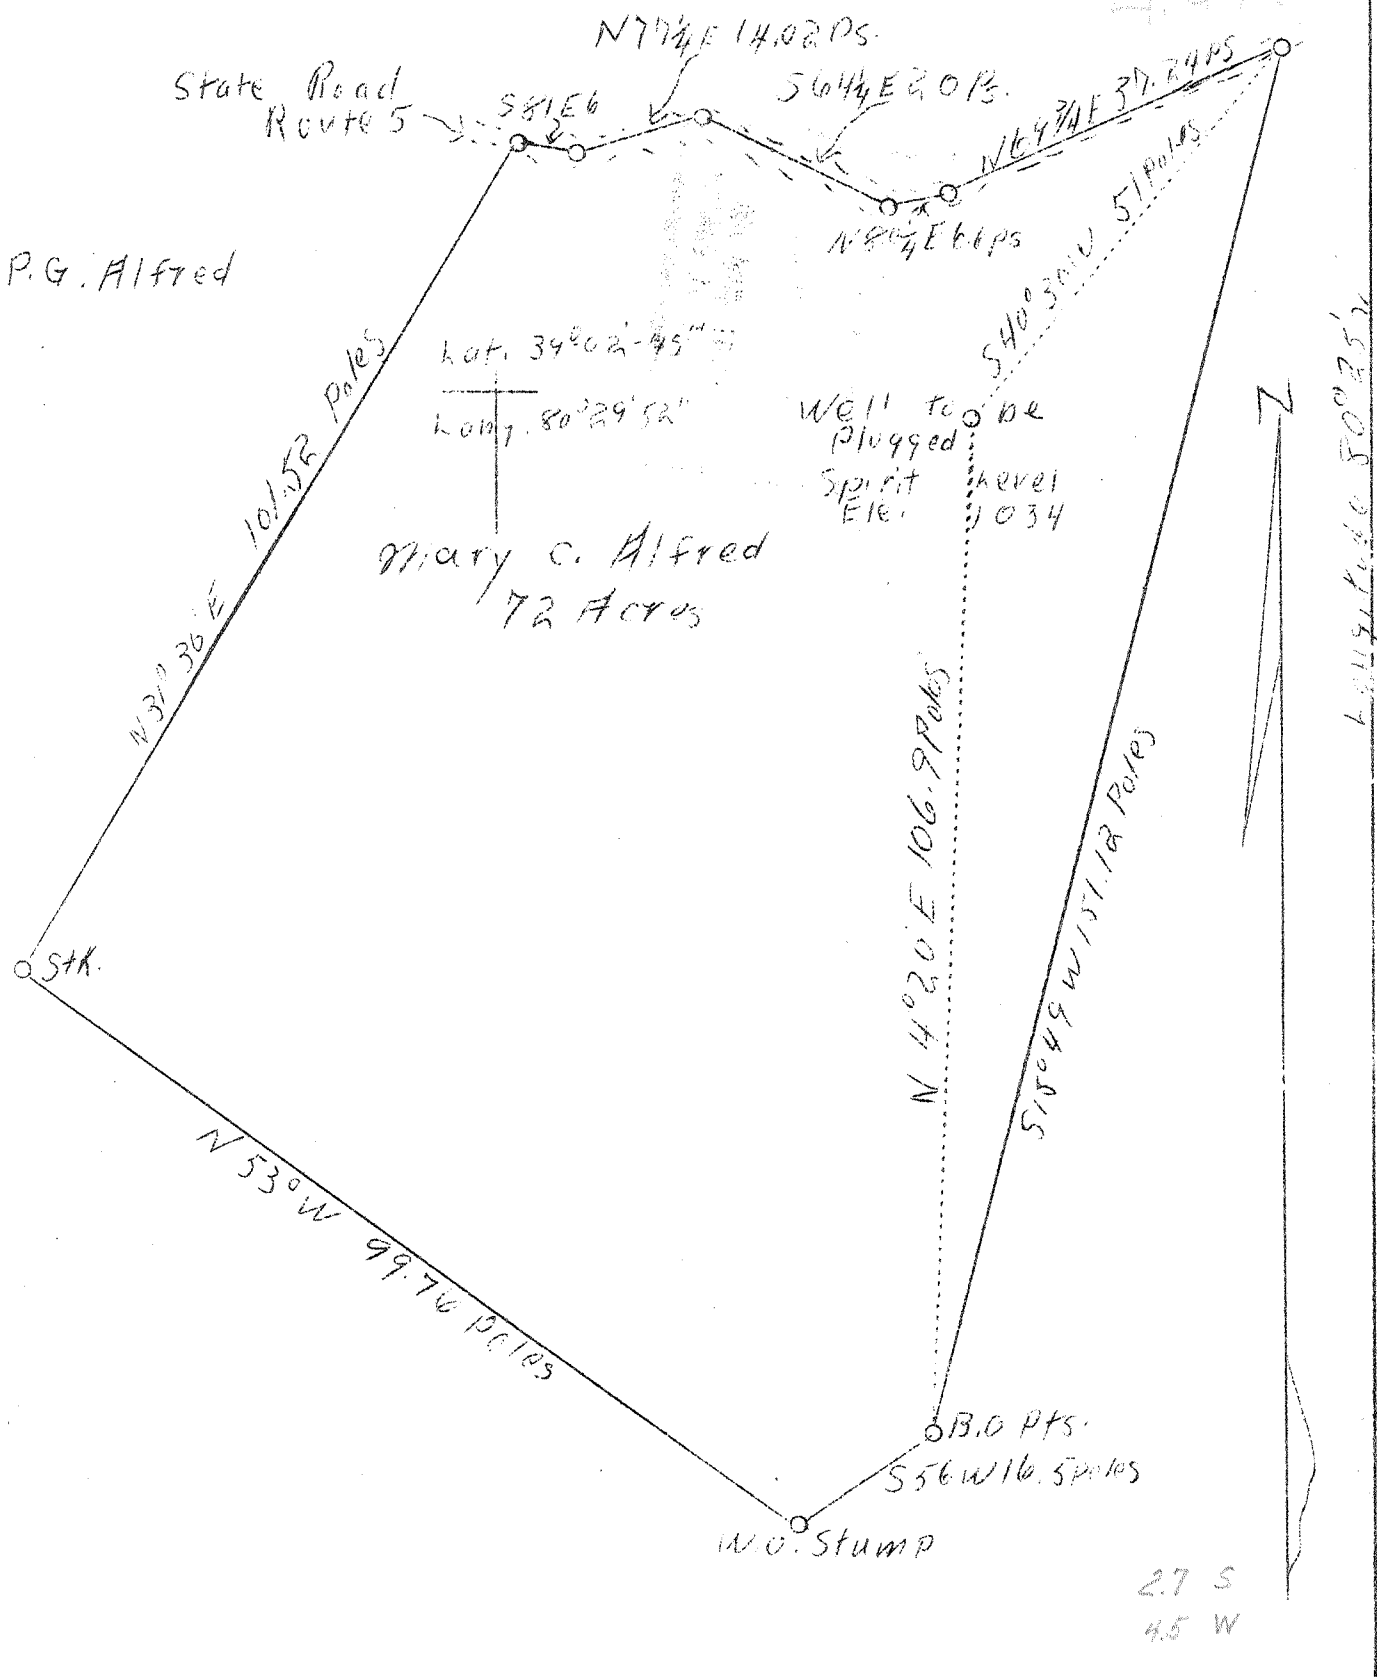 N77¼E 14.02 Ps.
State Road
Route 5
S81E6
S64¼E 20 Ps.
N69¾E 37.24 Ps
N80¼E 6.6 ps
S40°30'W 51 Poles
P.G. Alfred
Lat. 39°02'-45"
Long. 80°29'52"
Well to be
Plugged
Spirit Level
Ele. 1034
Mary C. Alfred
72 Acres
N31°30'E 101.52 Poles
N 4°20'E 106.9 Poles
S15°49'W 151.12 Poles
Longitude 80°25'
Stk.
N 53°W 99.76 Poles
B.O Pts.
S56W16.5 poles
W.O. Stump
2.7 S
4.5 W